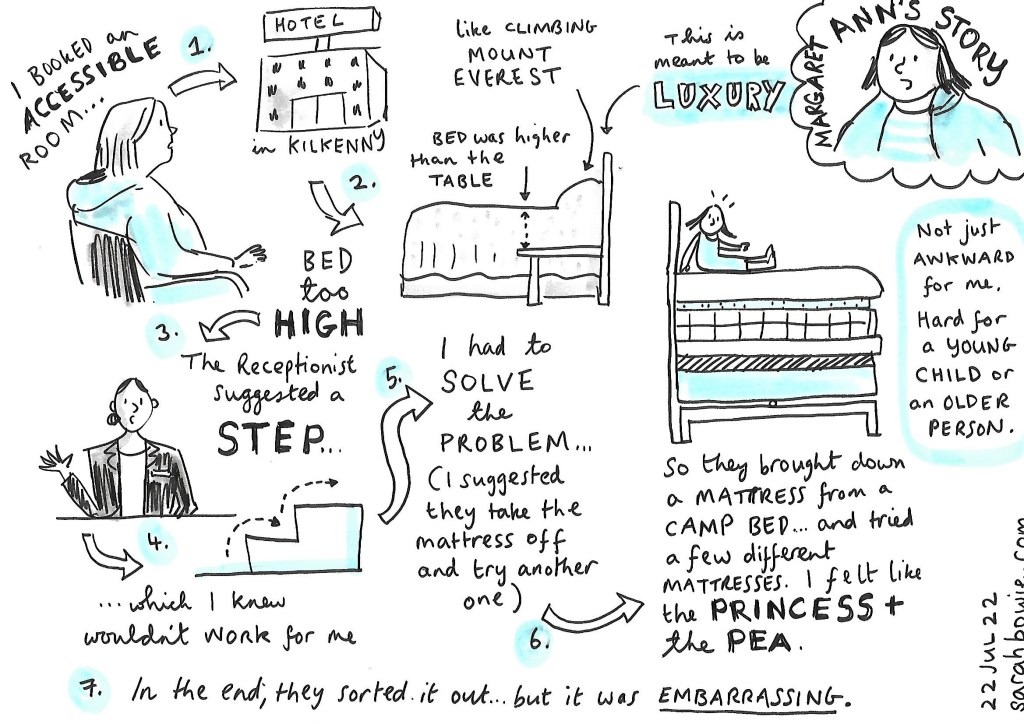 MARGARET
ANN'S STORY
I BOOKED an
ACCESSIBLE
ROOM...
1.
HOTEL
in KILKENNY
2.
BED
too
HIGH
like CLIMBING
MOUNT
EVEREST
This is
meant to be
LUXURY
BED was higher
than the
TABLE
3.
The Receptionist
suggested a
STEP...
4.
...which I knew
wouldn't WORK for me
5.
I had to
SOLVE
the
PROBLEM...
(I suggested
they take the
mattress off
and try another
one)
6.
So they brought down
a MATTRESS from a
CAMP BED... and tried
a few different
MATTRESSES. I felt like
the PRINCESS +
the PEA.
Not just
AWKWARD
for me.
Hard for
a YOUNG
CHILD or
an OLDER
PERSON.
7. In the end, they sorted it out... but it was EMBARRASSING.
22 JUL 22
sarahbowie.com